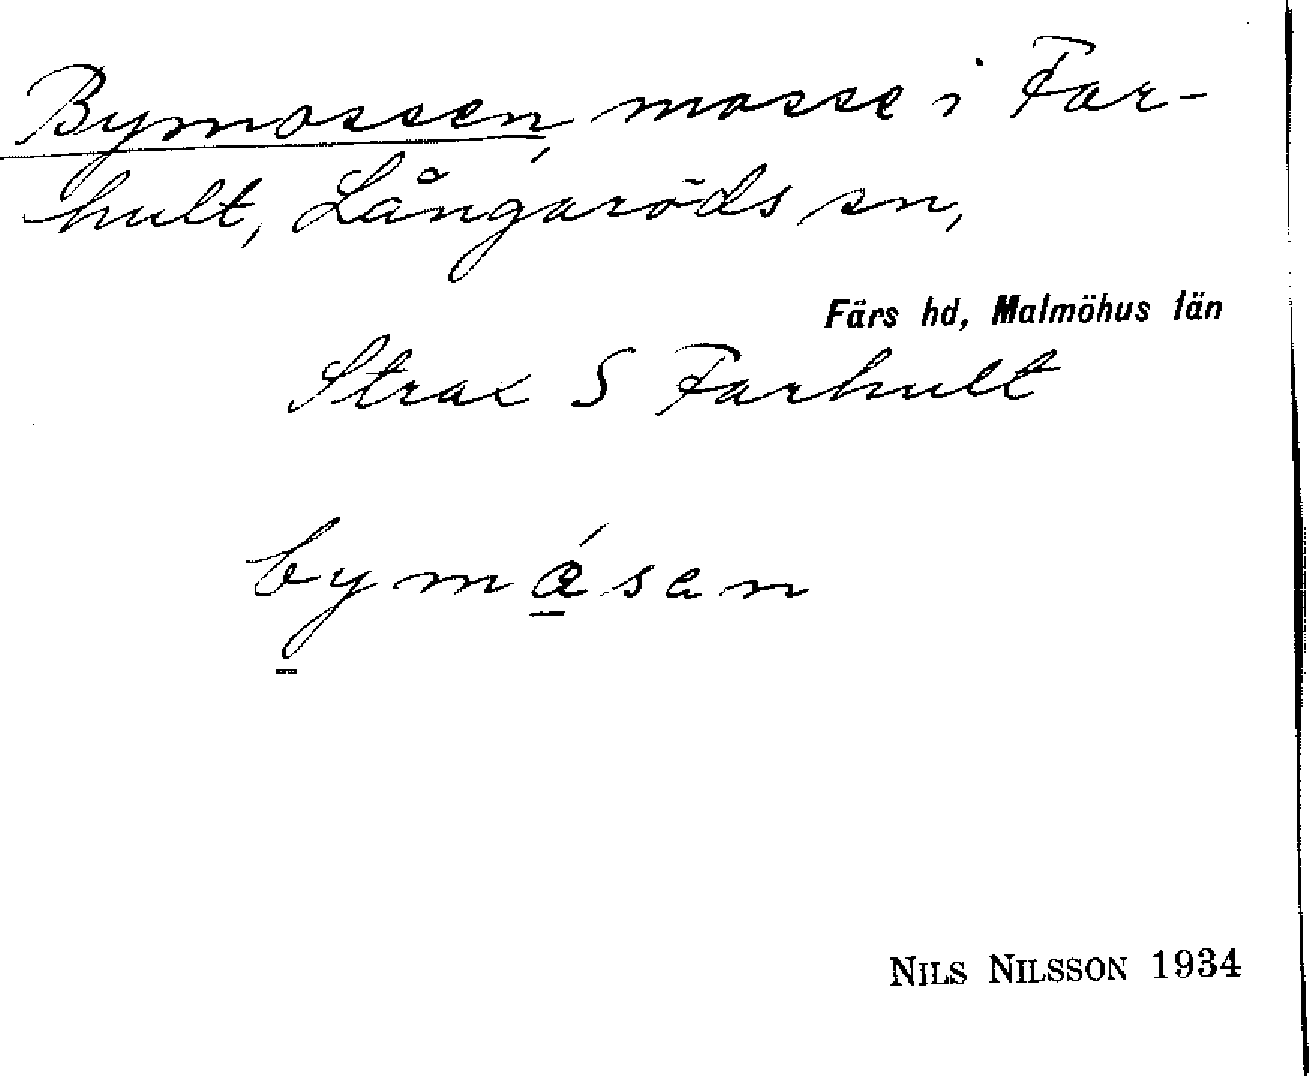 Bymossen, mosse i Far-
hult, Långaröds sn,
Färs hd, Malmöhus län
Strax S Farhult
bymåsen
NILS NILSSON 1934